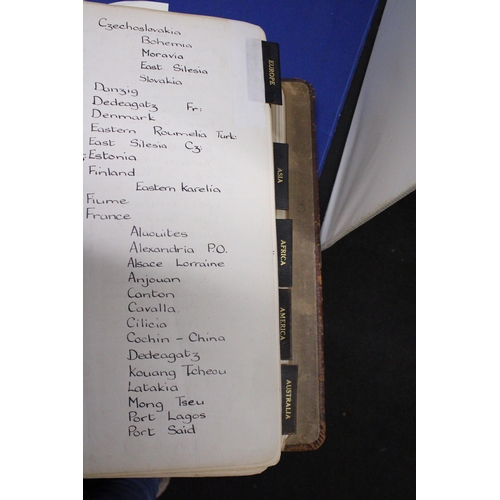 Czechoslovakia
Bohemia
Moravia
East Silesia
Slovakia
Danzig
Dedeagatz Fr:
Denmark
Eastern Roumelia Turk:
East Silesia Cz:
Estonia
Finland
Eastern Karelia
Fiume
France
Alaouites
Alexandria P.O.
Alsace Lorraine
Anjouan
Canton
Cavalla
Cilicia
Cochin - China
Dedeagatz
Kouang Tcheou
Latakia
Mong Tseu
Port Lagos
Port Said
EUROPE
ASIA
AFRICA
AMERICA
AUSTRALIA